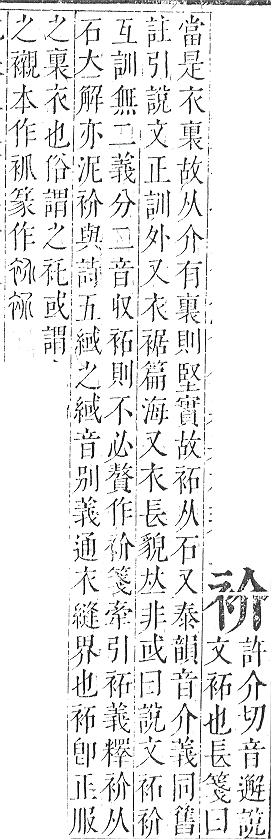 衸
許介切音邂說
文袥也長箋曰
當是衣裏故从介有裏則堅實故袥从石又泰韻音介義同舊
註引說文正訓外又衣裾篇海又衣長貌𠀤非或曰說文袥衸
互訓無二義分二音収袥則不必贅作衸箋牽引袥義釋衸从
石大解亦泥衸與詩五緎之緎音别義通衣縫界也袥卽正服
之裏衣也俗謂之衦或謂
之襯本作𧘑篆作